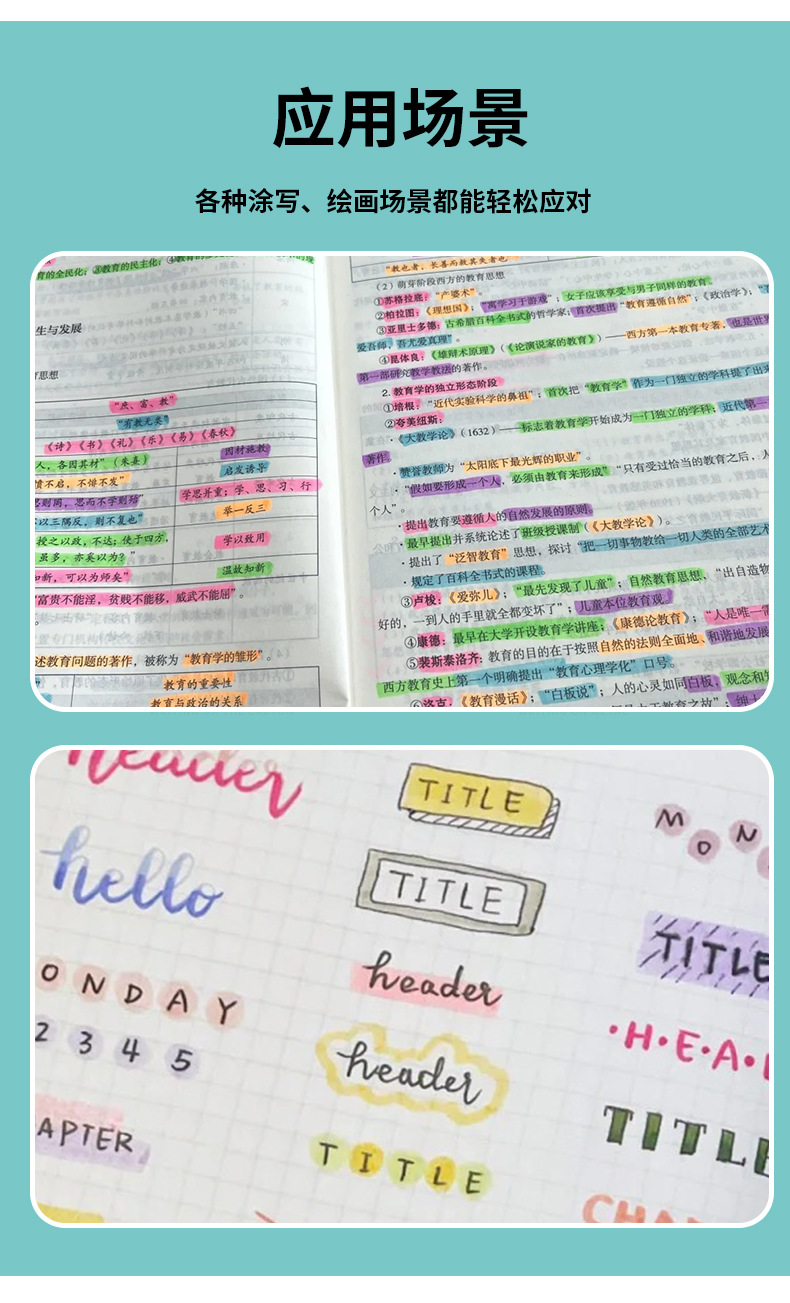 应用场景
各种涂写、绘画场景都能轻松应对
育的全民化；③教育的民主化；④教育的
生与发展
育思想
“庶、富、教”
“有教无类”
《诗》《书》《礼》《乐》《易》《春秋》
人，各因其材”（朱熹）
因材施教
愤不启，不悱不发”
启发诱导
思则罔，思而不学则殆”
学思并重：学、思、习、行
以三隅反，则不复也”
举一反三
授之以政，不达；使于四方，
虽多，亦奚以为？”
学以致用
知新，可以为师矣”
温故知新
富贵不能淫，贫贱不能移，威武不能屈”。
述教育问题的著作，被称为“教育学的雏形”。
教育的重要性
教育与政治的关系
“教也者，长善而救其失者也
（2）萌芽阶段西方的教育思想
①苏格拉底：“产婆术”。
②柏拉图：《理想国》；“寓学习于游戏”；女子应该享受与男子同样的教育。
③亚里士多德：古希腊百科全书式的哲学家；首次提出“教育遵循自然”；《政治学》；
爱吾师，吾尤爱真理”。
④昆体良：《雄辩术原理》（《论演说家的教育》）——西方第一本教育专著，也是世界
第一部研究教学教法的著作。
2. 教育学的独立形态阶段
①培根：“近代实验科学的鼻祖”；首次把“教育学”作为一门独立的学科提了出来
②夸美纽斯：
·《大教学论》（1632）——标志着教育学开始成为一门独立的学科；近代第一
著作。
·赞誉教师为“太阳底下最光辉的职业”。
·“假如要形成一个人，必须由教育来形成”“只有受过恰当的教育之后，人
个人”。
·提出教育要遵循人的自然发展的原则。
·最早提出并系统论述了班级授课制（《大教学论》）。
·提出了“泛智教育”思想，探讨“把一切事物教给一切人类的全部艺术
·规定了百科全书式的课程。
③卢梭：《爱弥儿》；“最先发现了儿童”；自然教育思想，“出自造物
好的，一到人的手里就全都变坏了”；儿童本位教育观。
④康德：最早在大学开设教育学讲座；《康德论教育》；“人是唯一需
⑤裴斯泰洛齐：教育的目的在于按照自然的法则全面地、和谐地发展
西方教育史上第一个明确提出“教育心理学化”口号。
⑥洛克：《教育漫话》；“白板说”；人的心灵如同白板，观念和知
header
hello
ONDAY
2 3 4 5
APTER
TITLE
TITLE
header
header
TITLE
MON
TITLE
·H·E·A·
TITLE
CHA